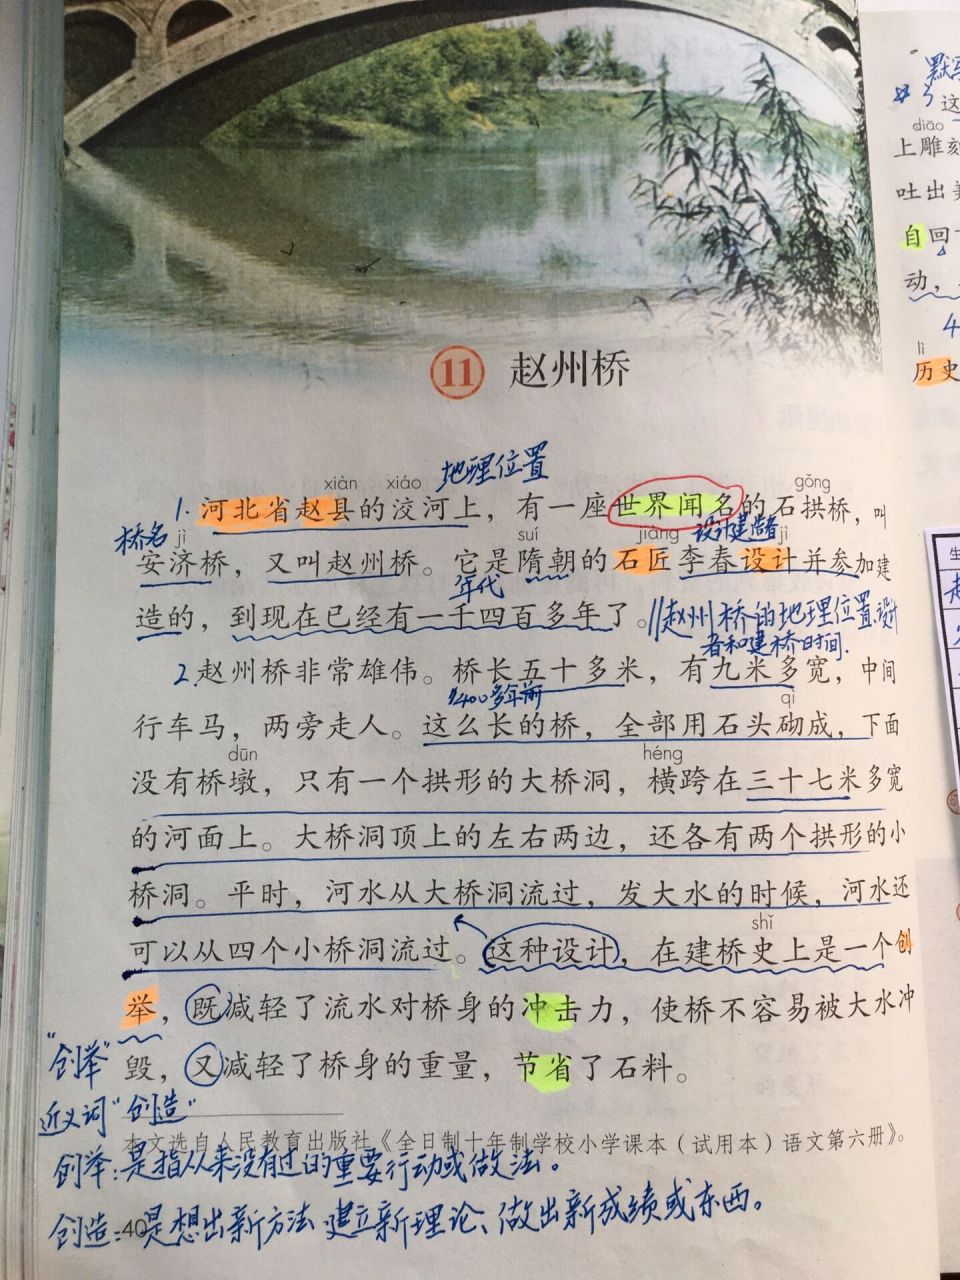 11 赵州桥
地理位置
xiàn xiáo gǒng
1. 河北省赵县的洨河上，有一座世界闻名的石拱桥，叫
桥名 jì suí jiàng 设计建造者 jì
安济桥，又叫赵州桥。它是隋朝的石匠李春设计并参加建
年代
造的，到现在已经有一千四百多年了。∥赵州桥的地理位置、设计
者和建桥时间.
2. 赵州桥非常雄伟。桥长五十多米，有九米多宽，中间
1400多年前 qì
行车马，两旁走人。这么长的桥，全部用石头砌成，下面
dūn héng
没有桥墩，只有一个拱形的大桥洞，横跨在三十七米多宽
的河面上。大桥洞顶上的左右两边，还各有两个拱形的小
桥洞。平时，河水从大桥洞流过，发大水的时候，河水还
shǐ
可以从四个小桥洞流过。这种设计，在建桥史上是一个创
举，既减轻了流水对桥身的冲击力，使桥不容易被大水冲
毁，又减轻了桥身的重量，节省了石料。
"创举"
近义词"创造"
本文选自人民教育出版社《全日制十年制学校小学课本（试用本）语文第六册》。
创举：是指从来没有过的重要行动或做法。
创造：是想出新方法、建立新理论、做出新成绩或东西。
40
默写
这
diāo
上雕刻
吐出
自回
动，
4
lì
历史